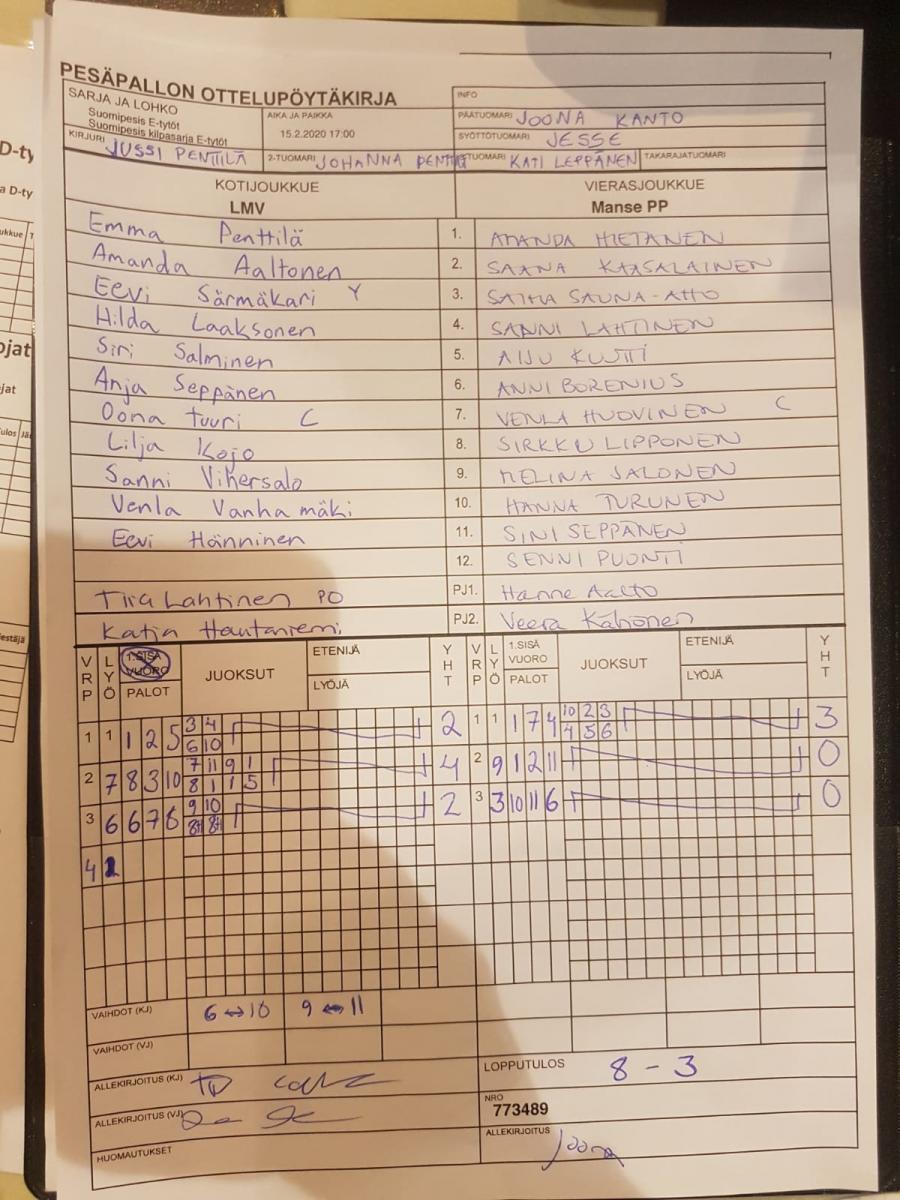 PESÄPALLON OTTELUPÖYTÄKIRJA
SARJA JA LOHKO
Suomipesis E-tytöt
Suomipesis kilpasarja E-tytöt
AIKA JA PAIKKA
15.2.2020 17:00
INFO
PÄÄTUOMARI JOONA KANTO
SYÖTTÖTUOMARI JESSE
KIRJURI JUSSI PENTTILÄ
2-TUOMARI JOHANNA
KATI LEPPÄNEN
TAKARAJATUOMARI
KOTIJOUKKUE
LMV
VIERASJOUKKUE
Manse PP
Emma Penttilä 1. AMANDA HIETANEN
Amanda Aaltonen 2. SAANA KAASALAINEN
Eevi Särmäkari Y 3. SAIMA SAUNA-AHO
Hilda Laaksonen 4. SANNI LAHTINEN
Siri Salminen 5. AIJU KUJTTI
Anja Seppänen 6. ANNI BORENIUS
Oona Tuuri C 7. VENLA HUOVINEN C
Lilja Kojo 8. SIRKKU LIPPONEN
Sanni Vihersalo 9. MELINA SALONEN
Venla Vanhamäki 10. HANNA TURUNEN
Eevi Hänninen 11. SINI SEPPÄNEN
12. SENNI PUONTI
Tiia Lahtinen PO PJ1. Hanne Aalto
Katja Hautaniemi PJ2. Veera Kähönen
VRP LYÖ 1.SISÄ VUORO PALOT JUOKSUT ETENIJÄ LYÖJÄ YHT VRP LYÖ 1.SISÄ VUORO PALOT JUOKSUT ETENIJÄ LYÖJÄ YHT
1 1 1 2 5 3 4 2 1 1 1 7 4 10 2 3 3
6 10 4 5 6
2 7 8 3 10 7 11 9 1 4 2 9 1 2 11 0
8 1 1 5
3 6 6 7 8 9 10 2 3 3 10 11 6 0
4
VAIHDOT (KJ) 6 ↔ 10 9 ↔ 11
VAIHDOT (VJ)
ALLEKIRJOITUS (KJ)
LOPPUTULOS 8 - 3
ALLEKIRJOITUS (VJ)
NRO
773489
HUOMAUTUKSET
ALLEKIRJOITUS
Joona